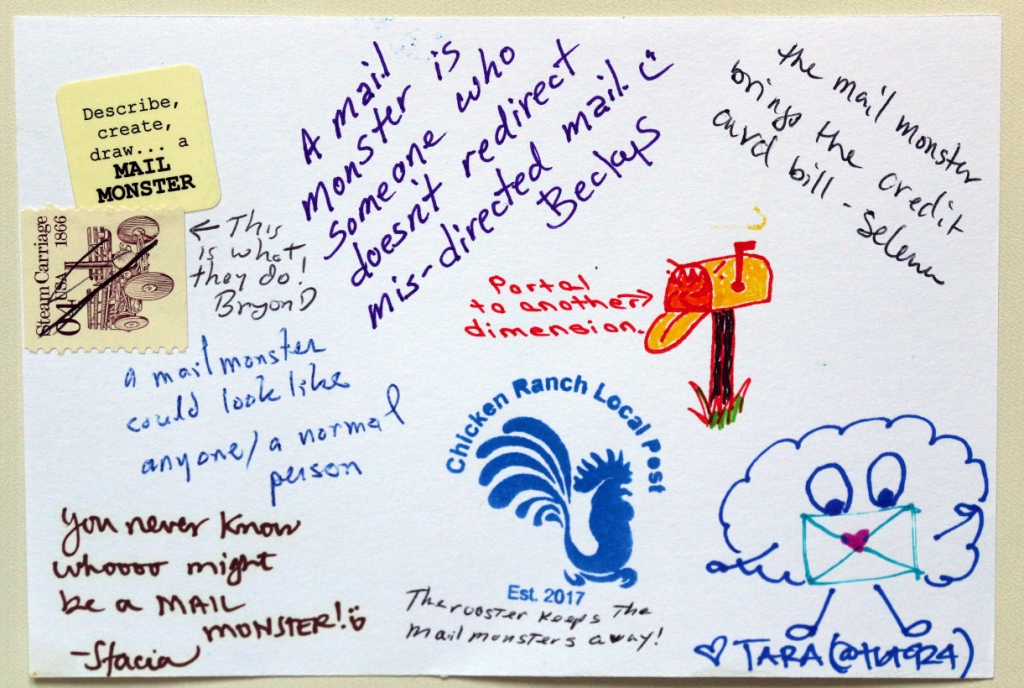 Describe,
create,
draw... a
MAIL
MONSTER
Steam Carriage
1866
04 USA
← This
is what
they do!
Bryon D
A mail
monster is
someone who
doesn't redirect
mis-directed mail.
Beckyps
the mail monster
brings the credit
card bill - Selena
Portal
to another
dimension.
a mail monster
could look like
anyone/a normal
person
Chicken Ranch Local Post
Est. 2017
The rooster keeps the
mail monsters away!
You never know
whoooo might
be a MAIL
MONSTER!
-Stacia
♡ TARA (@tht924)